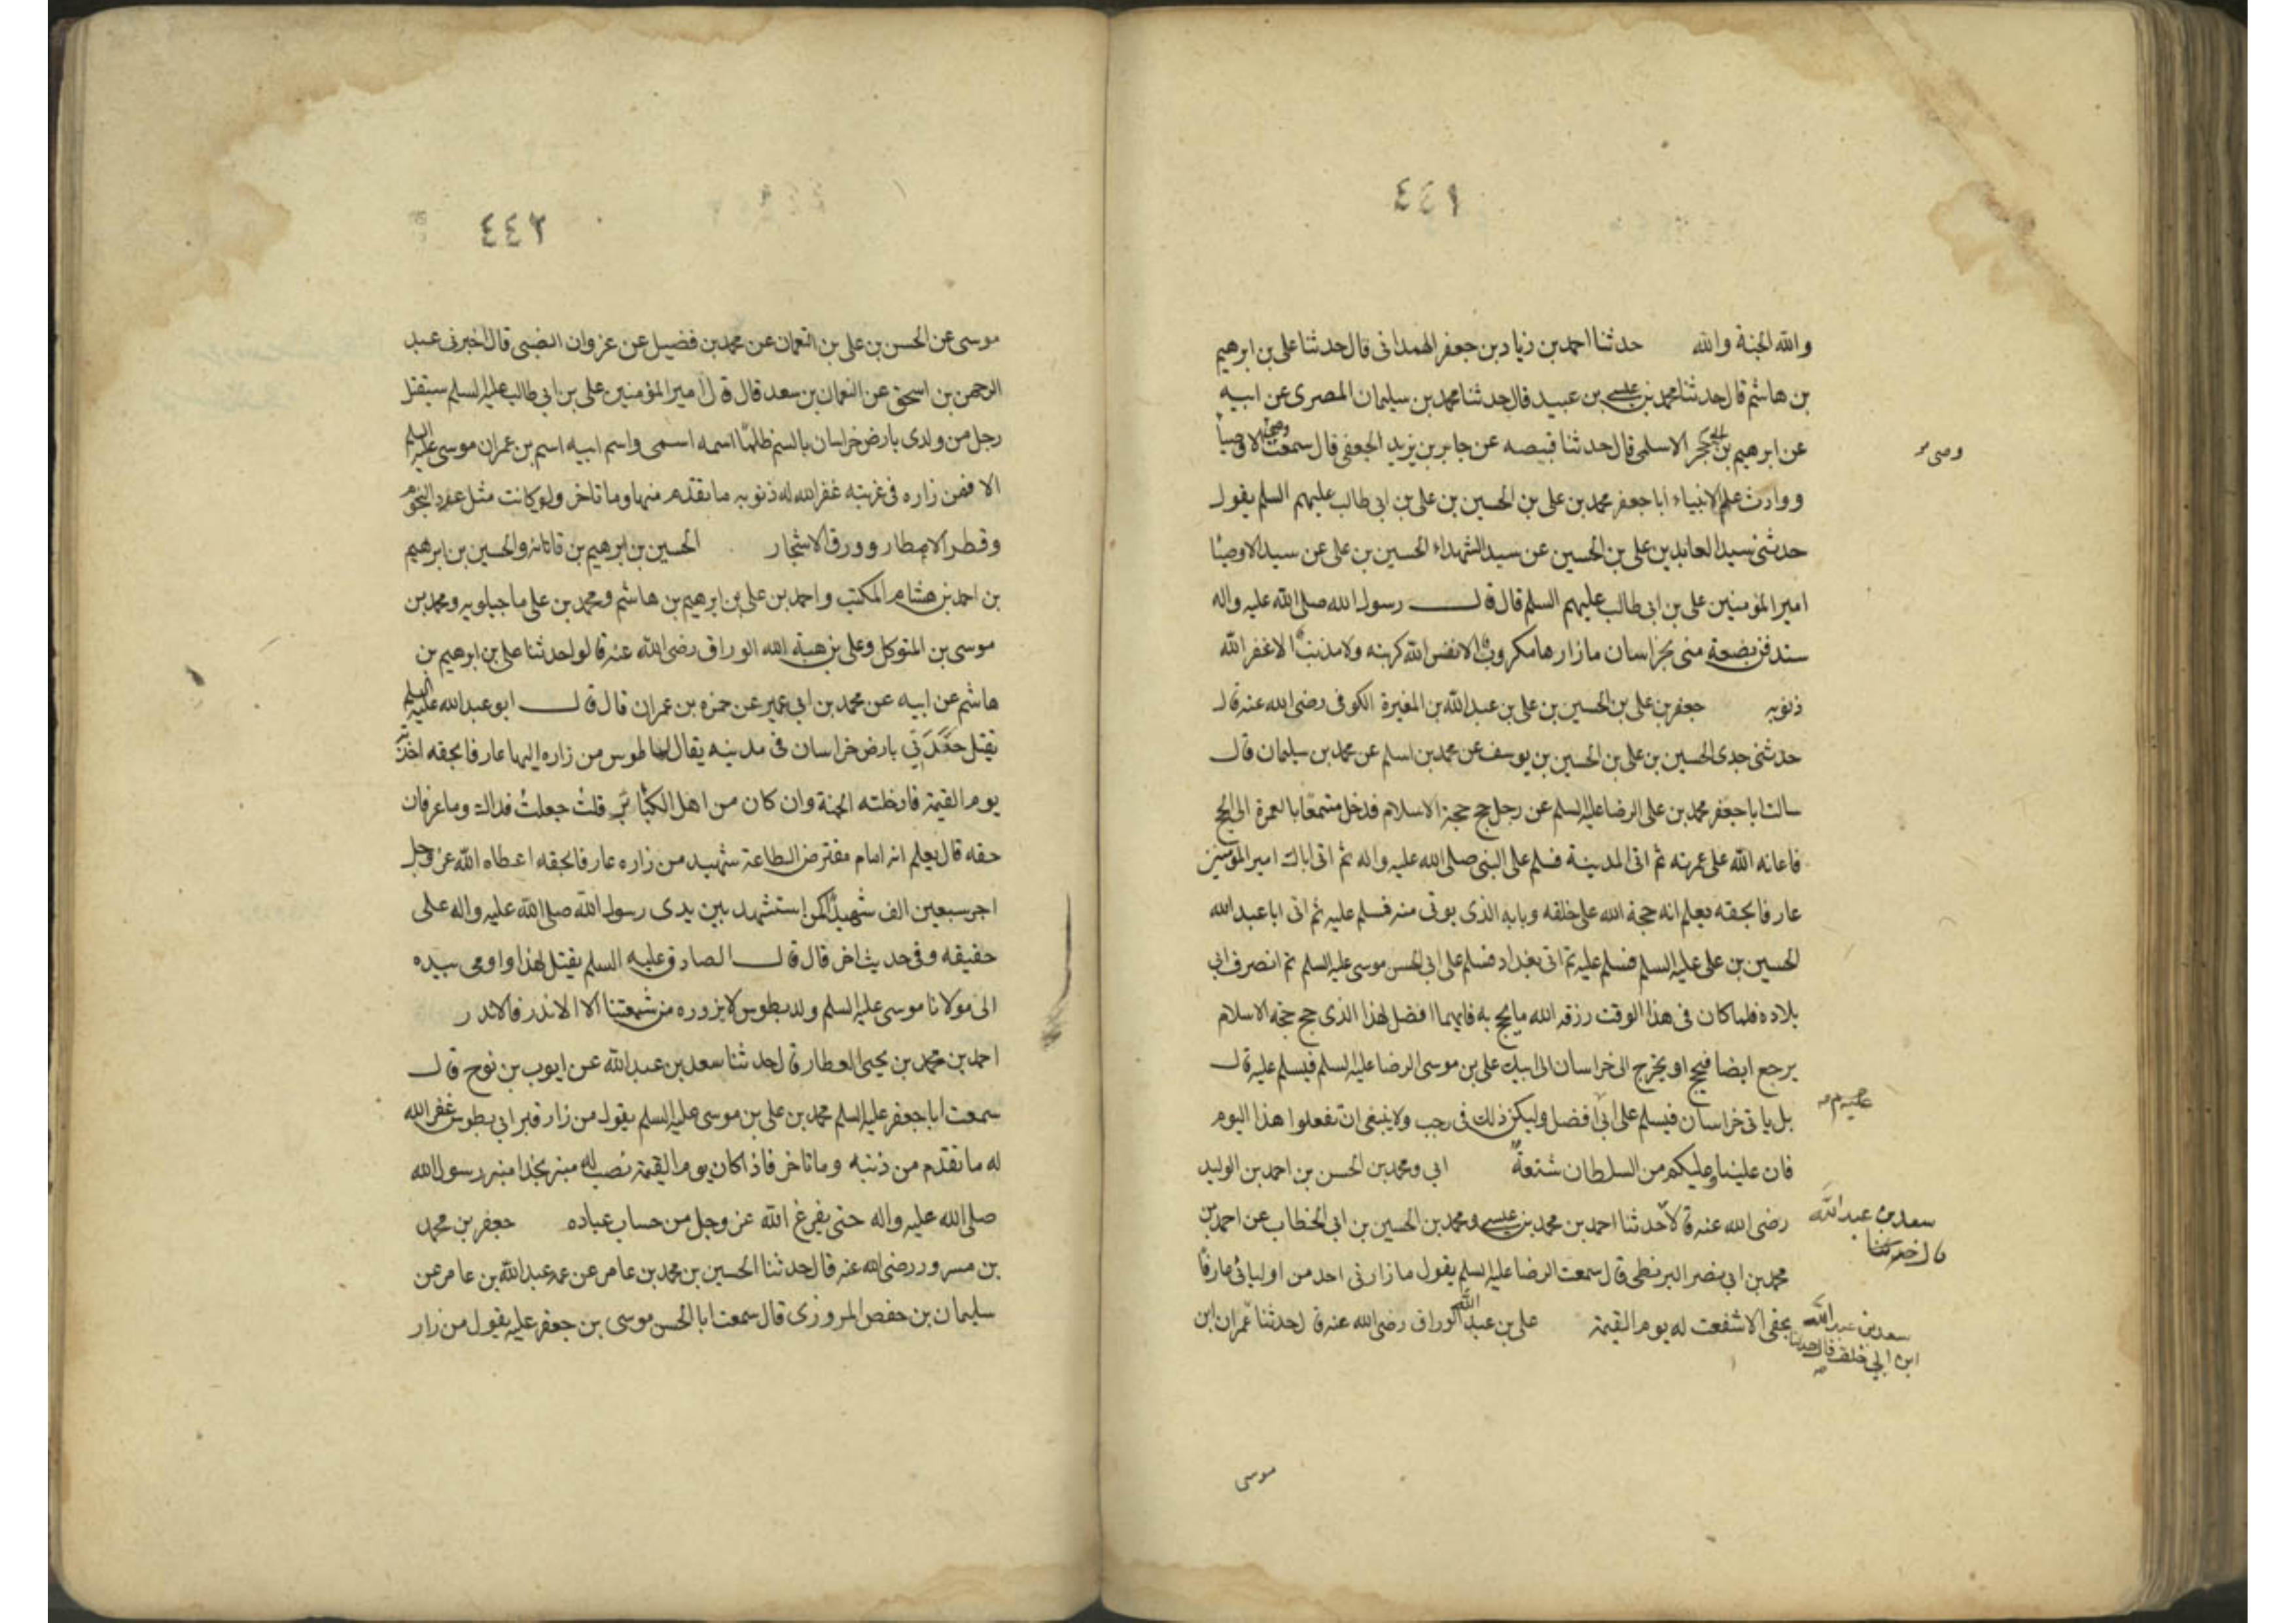 ٤٤١
والله الجنة والله حدثنا احمد بن زياد بن جعفر الهمداني قال حدثنا علي بن ابرهيم
بن هاشم قال حدثنا محمد بن عيسى بن عبيد قال حدثنا محمد بن سليمان المصرى عن ابيه
عن ابرهيم بن ابي حجر الاسلمى قال حدثنا قبيصه عن جابر بن يزيد الجعفى قال سمعت وصى الاوصيا
وصى
ووارث علم الانبياء ابا جعفر محمد بن على بن الحسين بن على بن ابى طالب عليهم السلم يقول
حدثنى سيد العابدين على بن الحسين عن سيد الشهداء الحسين بن على عن سيد الاوصيا
امير المؤمنين على بن ابى طالب عليهم السلم قال قال رسول الله صلى الله عليه واله
ستدفن بضعة منى بخراسان ما زارها مكروب الا نفس الله كربته ولا مذنب الا غفر الله
ذنوبه جعفر بن على بن الحسين بن على بن عبد الله بن المغيرة الكوفى رضى الله عنه قال
حدثنى جدى الحسين بن على بن الحسين بن يوسف عن محمد بن اسلم عن محمد بن سليمان قال
سالت ابا جعفر محمد بن على الرضا عليه السلم عن رجل حج حجة الاسلام فدخل متمتعا بالعمرة الى الحج
فاعانه الله على عمرته ثم اتى المدينة فسلم على النبى صلى الله عليه واله ثم اتى اباك امير المؤمنين
عارفا بحقه يعلم انه حجة الله على خلقه وبابه الذى يوتى منه فسلم عليه ثم اتى ابا عبد الله
الحسين بن على عليه السلم فسلم عليه ثم اتى بغداد فسلم على ابى الحسن موسى عليه السلم ثم انصرف الى
بلاده فلما كان فى هذا الوقت رزقه الله ما يحج به فايهما افضل لهذا الذى حج حجة الاسلام
يرجع ايضا فيحج او يخرج الى خراسان الى ابيك على بن موسى الرضا عليه السلم فيسلم عليه قال
بل ياتى خراسان فيسلم على ابى افضل وليكن ذلك فى رجب ولا ينبغى ان تفعلوا هذا اليوم
فان علينا وعليكم من السلطان شنعة ابى ومحمد بن الحسن بن احمد بن الوليد
رضى الله عنه قالا حدثنا احمد بن محمد بن عيسى ومحمد بن الحسين بن ابى الخطاب عن احمد بن
سعد بن عبد الله
قال حدثنا
محمد بن ابى نصر البزنطى قال سمعت الرضا عليه السلم يقول ما زارنى احد من اوليائى عارفا
بحقى الا شفعت له يوم القيمة على بن عبد الله الوراق رضى الله عنه قال حدثنا عمران ابن
سعد بن عبد الله
ابن ابى خلف قال حدثنا
موسى
٤٤٢
موسى عن الحسن بن على بن النعمان عن محمد بن فضيل عن غزوان الضبى قال اخبرنى عبد
الرحمن بن اسحق عن النعمان بن سعد قال قال امير المؤمنين على بن ابى طالب عليه السلم سيقتل
رجل من ولدى بارض خراسان بالسم ظلما اسمه اسمى واسم ابيه اسم بن عمران موسى عليه السلم
الا فمن زاره فى غربته غفر الله له ذنوبه ما تقدم منها وما تاخر ولو كانت مثل عدد النجوم
وقطر الامطار وورق الاشجار الحسين بن ابرهيم بن ناتانه والحسين بن ابرهيم
بن احمد بن هشام المكتب واحمد بن على بن ابرهيم بن هاشم ومحمد بن على ماجيلويه ومحمد بن
موسى بن المتوكل وعلى بن هبة الله الوراق رضى الله عنه قالوا حدثنا على بن ابرهيم بن
هاشم عن ابيه عن محمد بن ابى عمير عن حمزه بن عمران قال قال ابو عبد الله عليه السلم
يقتل حفدتى بارض خراسان فى مدينه يقال لها طوس من زاره اليها عارفا بحقه اخذته
يوم القيمة فادخلته الجنة وان كان من اهل الكبائر قلت جعلت فداك وما عرفان
حقه قال يعلم انه امام مفترض الطاعة شهيد من زاره عارفا بحقه اعطاه الله عز وجل
اجر سبعين الف شهيد ممن استشهد بين يدى رسول الله صلى الله عليه واله على
حقيقه وفى حديث اخر قال قال الصادق عليه السلم يقتل لهذا واومى بيده
الى مولانا موسى عليه السلم ولد بطوس لا يزوره من شيعتنا الا الاندر فالاندر
احمد بن محمد بن يحيى العطار قال حدثنا سعد بن عبد الله عن ايوب بن نوح قال
سمعت ابا جعفر عليه السلم محمد بن على بن موسى عليه السلم يقول من زار قبر ابى بطوس غفر الله
له ما تقدم من ذنبه وما تاخر فاذا كان يوم القيمة نصب له منبر بحذا منبر رسول الله
صلى الله عليه واله حتى يفرغ الله عز وجل من حساب عباده جعفر بن محمد
بن مسرور رضى الله عنه قال حدثنا الحسين بن محمد بن عامر عن عمه عبد الله بن عامر عن
سليمان بن حفص المروزى قال سمعت ابا الحسن موسى بن جعفر عليه يقول من زار